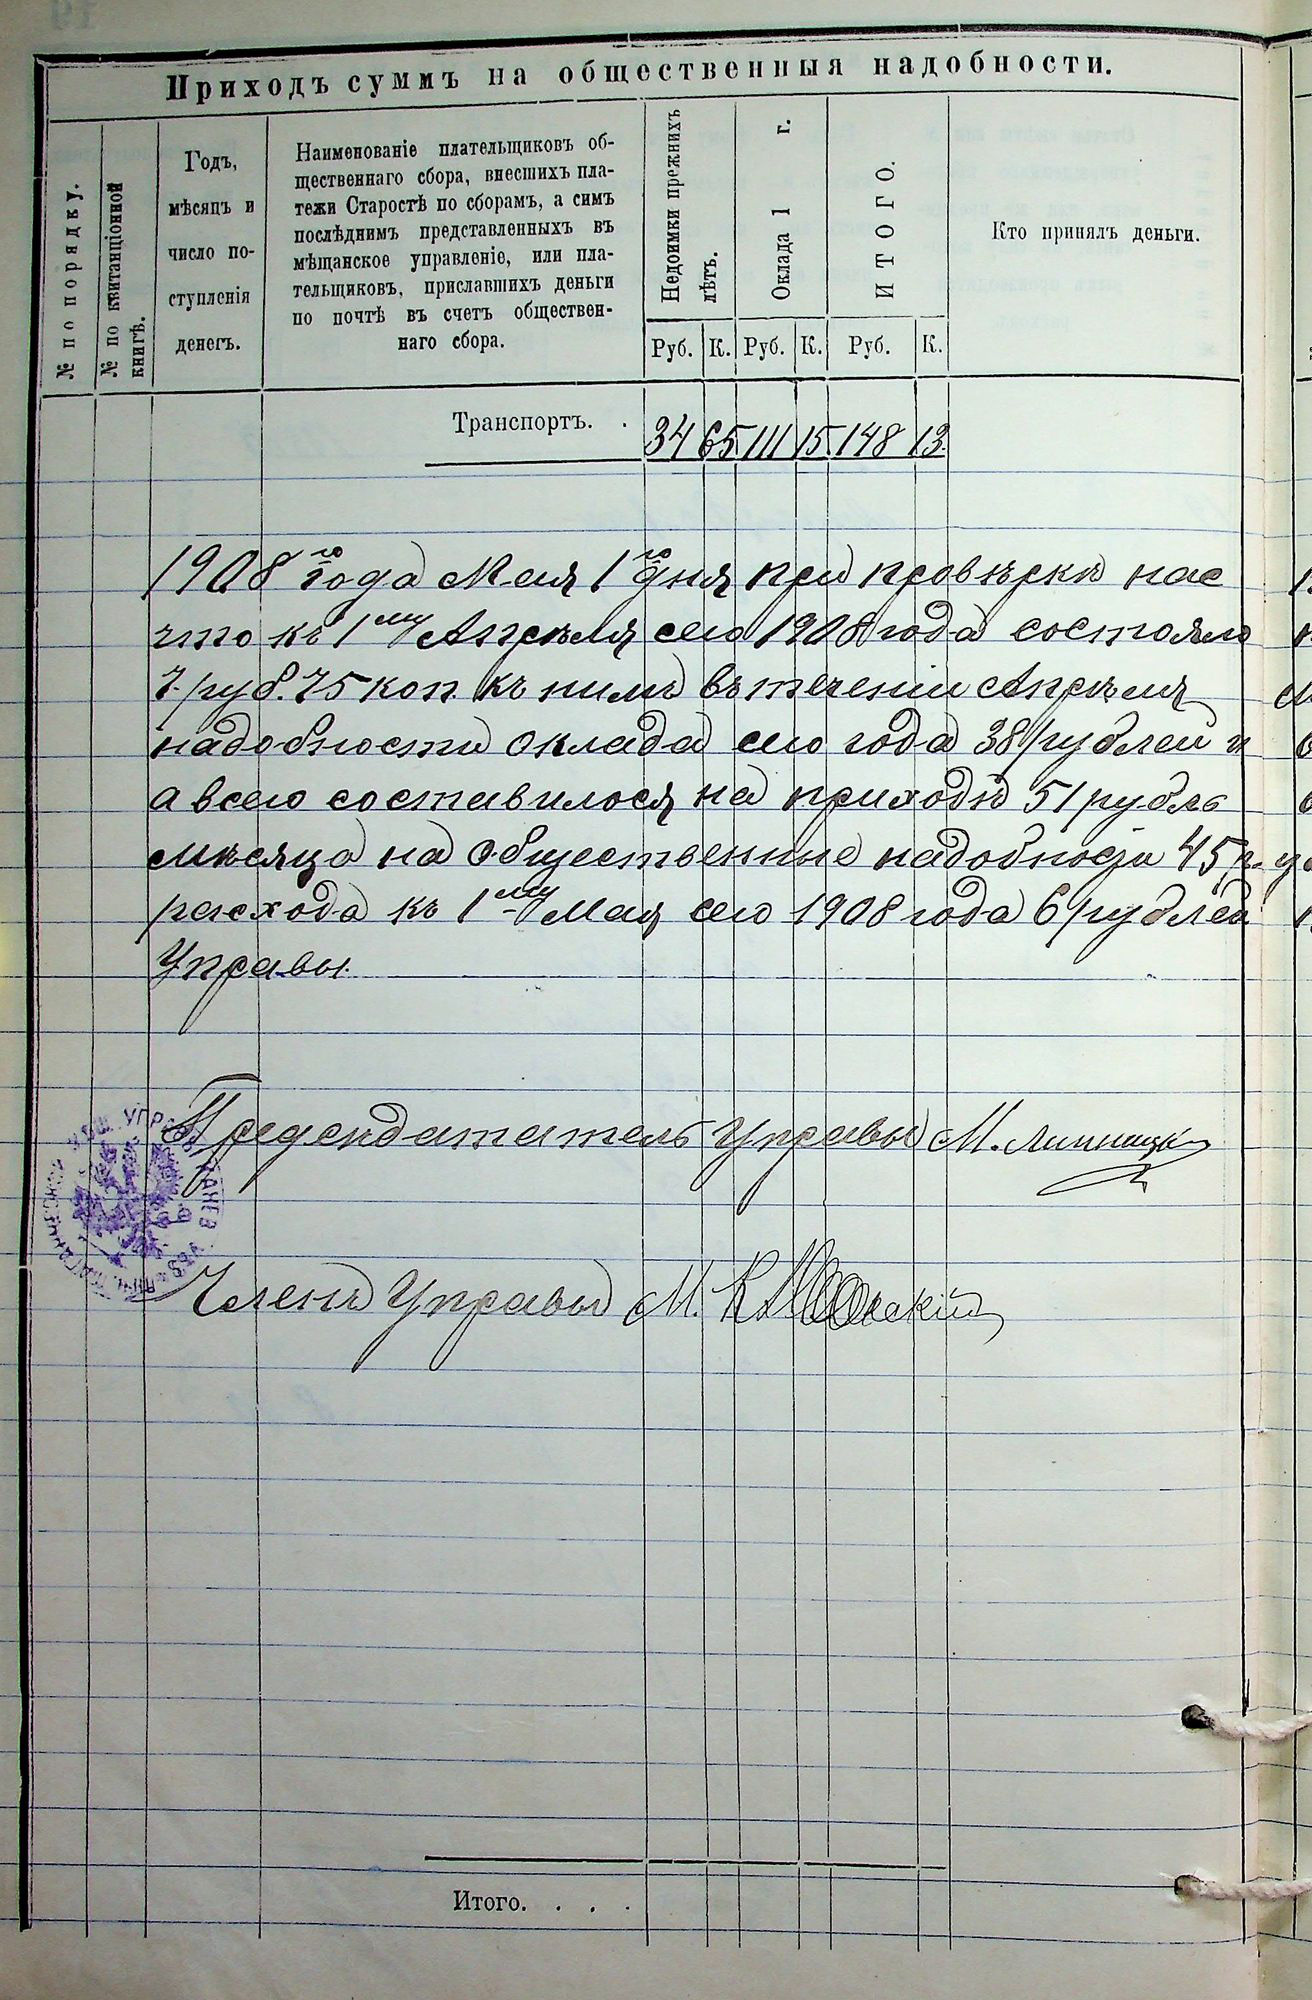 Приходъ суммъ на общественныя надобности.
№ по порядку.
№ по квитанціонной
книгѣ.
Годъ,
мѣсяцъ и
число по-
ступленія
денегъ.
Наименованіе плательщиковъ об-
щественнаго сбора, внесшихъ пла-
тежи Старостѣ по сборамъ, а симъ
послѣднимъ представленныхъ въ
мѣщанское управленіе, или пла-
тельщиковъ, приславшихъ деньги
по почтѣ въ счетъ обществен-
наго сбора.
Недоимки прежнихъ
лѣтъ.
Оклада 1 г.
ИТОГО.
Кто принялъ деньги.
Руб. К. Руб. К. Руб. К.
Транспортъ. . 34 65 111 15 148 13
1908 го года Мая 1 го дня при провѣркѣ нас
что къ 1 му Апрѣля сего 1908 года состояло
7 руб. 75 коп. къ нимъ въ теченіи Апрѣля
надобности оклада сего года 38 рублей и
а всего составилося на приходѣ 51 рубль
мѣсяца на общественные надобности 45 р.
расхода къ 1 му Мая сего 1908 года 6 рублей
Управы.
Председатель Управы М. Липницкій
Членъ Управы М.
Итого. . . .